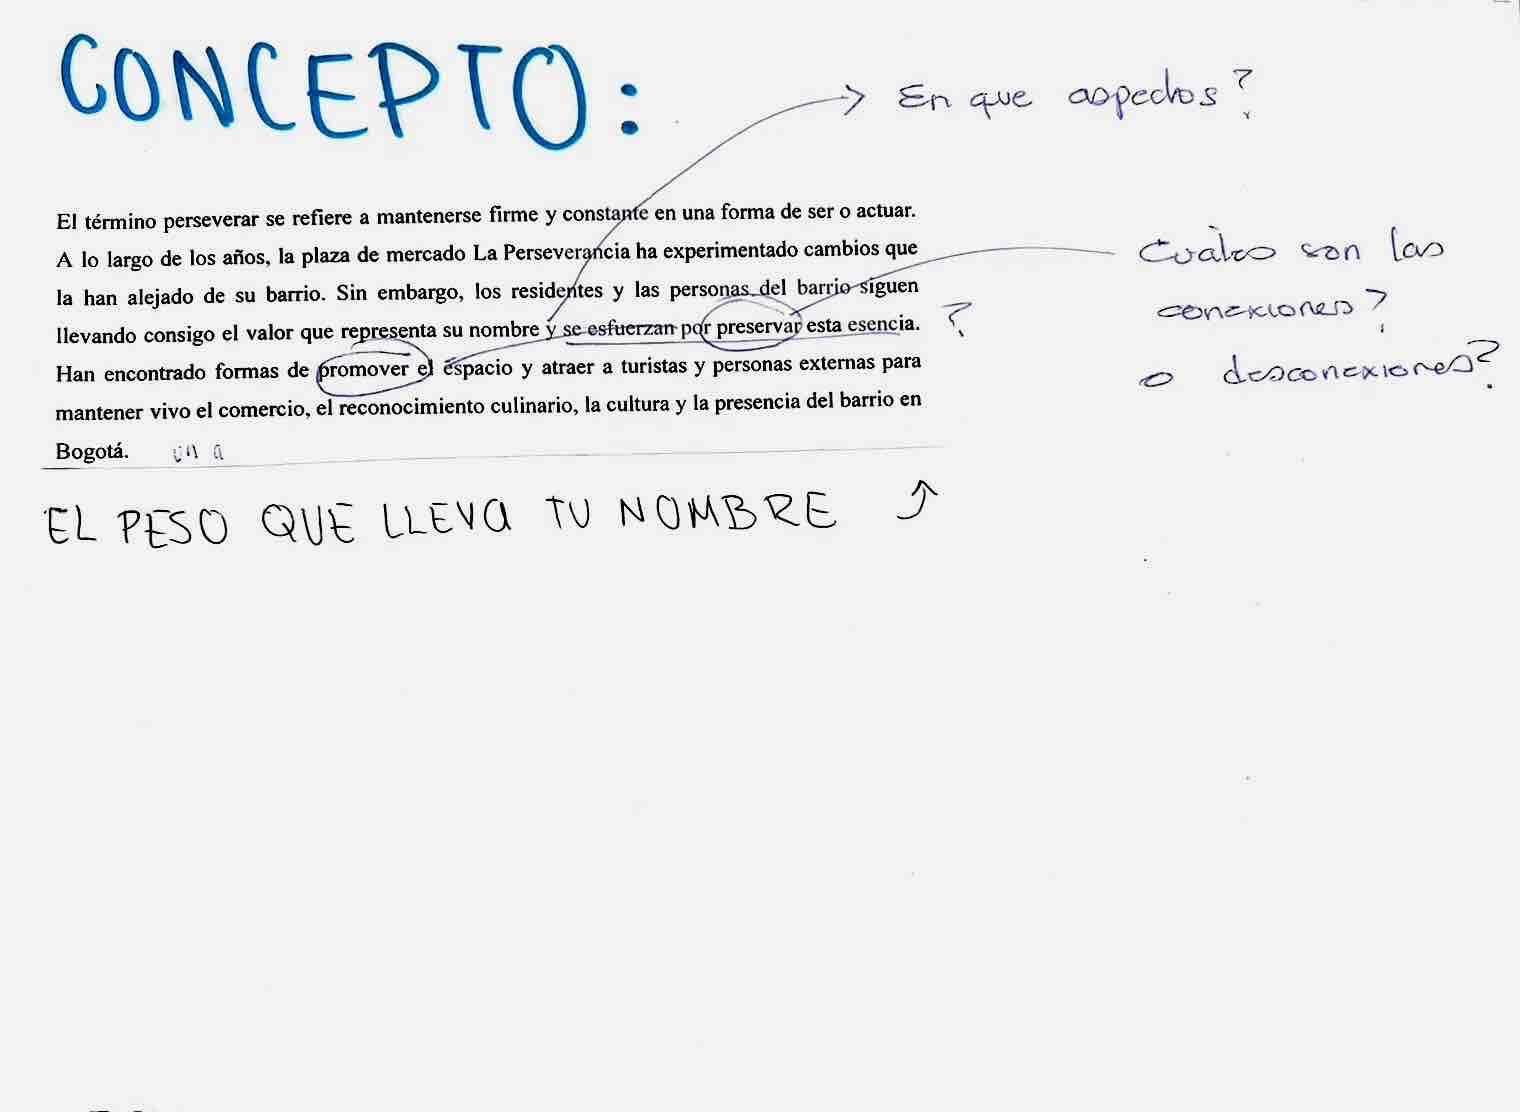 CONCEPTO:
En que aspectos?
El término perseverar se refiere a mantenerse firme y constante en una forma de ser o actuar.
A lo largo de los años, la plaza de mercado La Perseverancia ha experimentado cambios que
la han alejado de su barrio. Sin embargo, los residentes y las personas del barrio siguen
llevando consigo el valor que representa su nombre y se esfuerzan por preservar esta esencia. ?
Han encontrado formas de promover el espacio y atraer a turistas y personas externas para
mantener vivo el comercio, el reconocimiento culinario, la cultura y la presencia del barrio en
Bogotá.
Cuáles son las
conexiones?
o desconexiones?
EL PESO QUE LLEVA TU NOMBRE